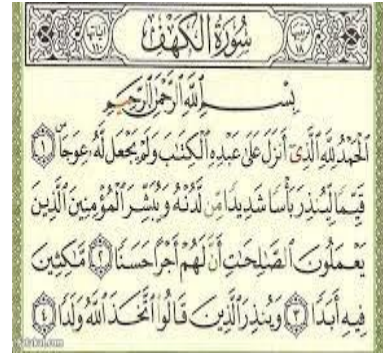 سُورَةُ الْكَهْفِ
بِسْمِ اللَّهِ الرَّحْمَٰنِ الرَّحِيمِ
الْحَمْدُ لِلَّهِ الَّذِي أَنزَلَ عَلَىٰ عَبْدِهِ الْكِتَٰبَ وَلَمْ يَجْعَل لَّهُ عِوَجَا ۜ ١
قَيِّمًا لِّيُنذِرَ بَأْسًا شَدِيدًا مِّن لَّدُنْهُ وَيُبَشِّرَ الْمُؤْمِنِينَ الَّذِينَ
يَعْمَلُونَ الصَّٰلِحَٰتِ أَنَّ لَهُمْ أَجْرًا حَسَنًا ٢ مَّٰكِثِينَ
فِيهِ أَبَدًا ٣ وَيُنذِرَ الَّذِينَ قَالُوا اتَّخَذَ اللَّهُ وَلَدًا ٤